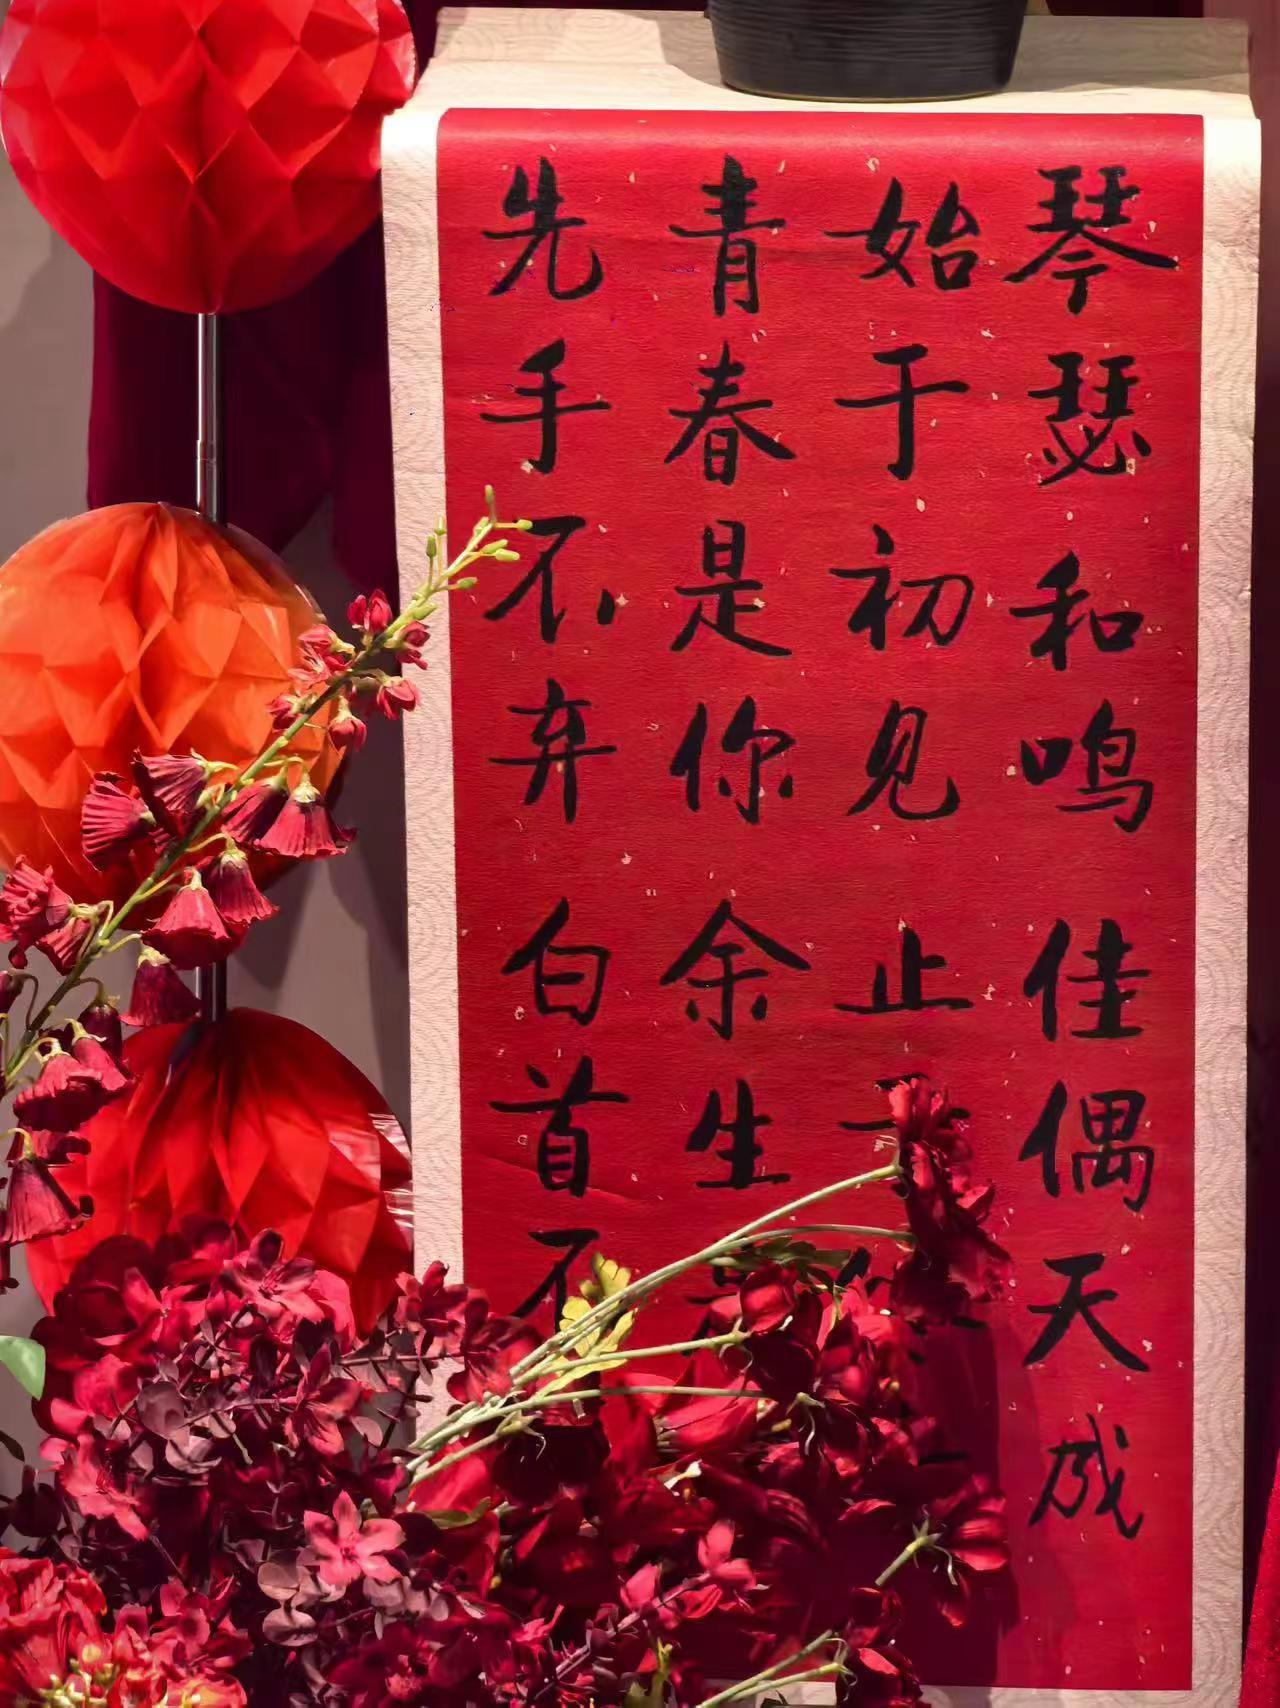 琴瑟和鸣 佳偶天成
始于初见 止
青春是你 余生
先手不弃 白首不